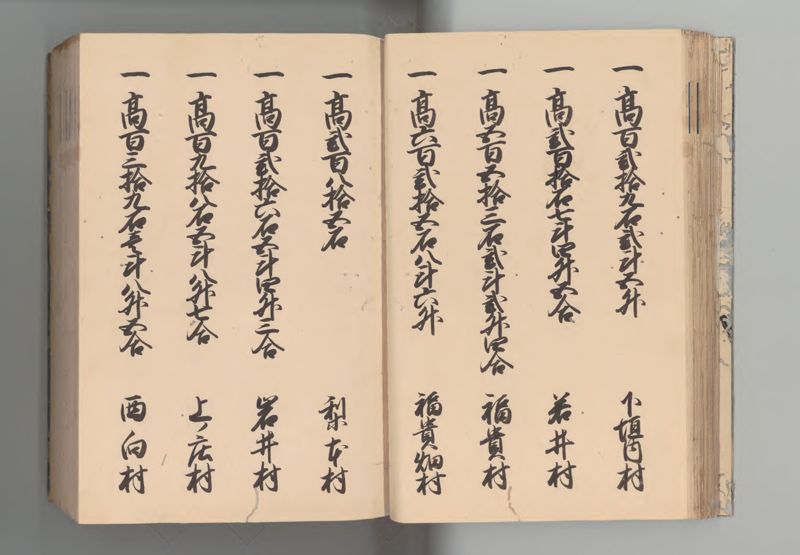 一 高百弐拾九石弐斗五升 下垣内村
一 高弐百拾石七斗四升五合 若井村
一 高五百五拾三石弐斗弐升四合 福貴村
一 高六百弐拾五石八斗六升 福貴畑村
一 高弐百八拾五石 梨本村
一 高百弐拾六石五斗四升三合 岩井村
一 高百九拾八石五斗八升七合 上ノ庄村
一 高百三拾九石壱斗八升五合 西向村